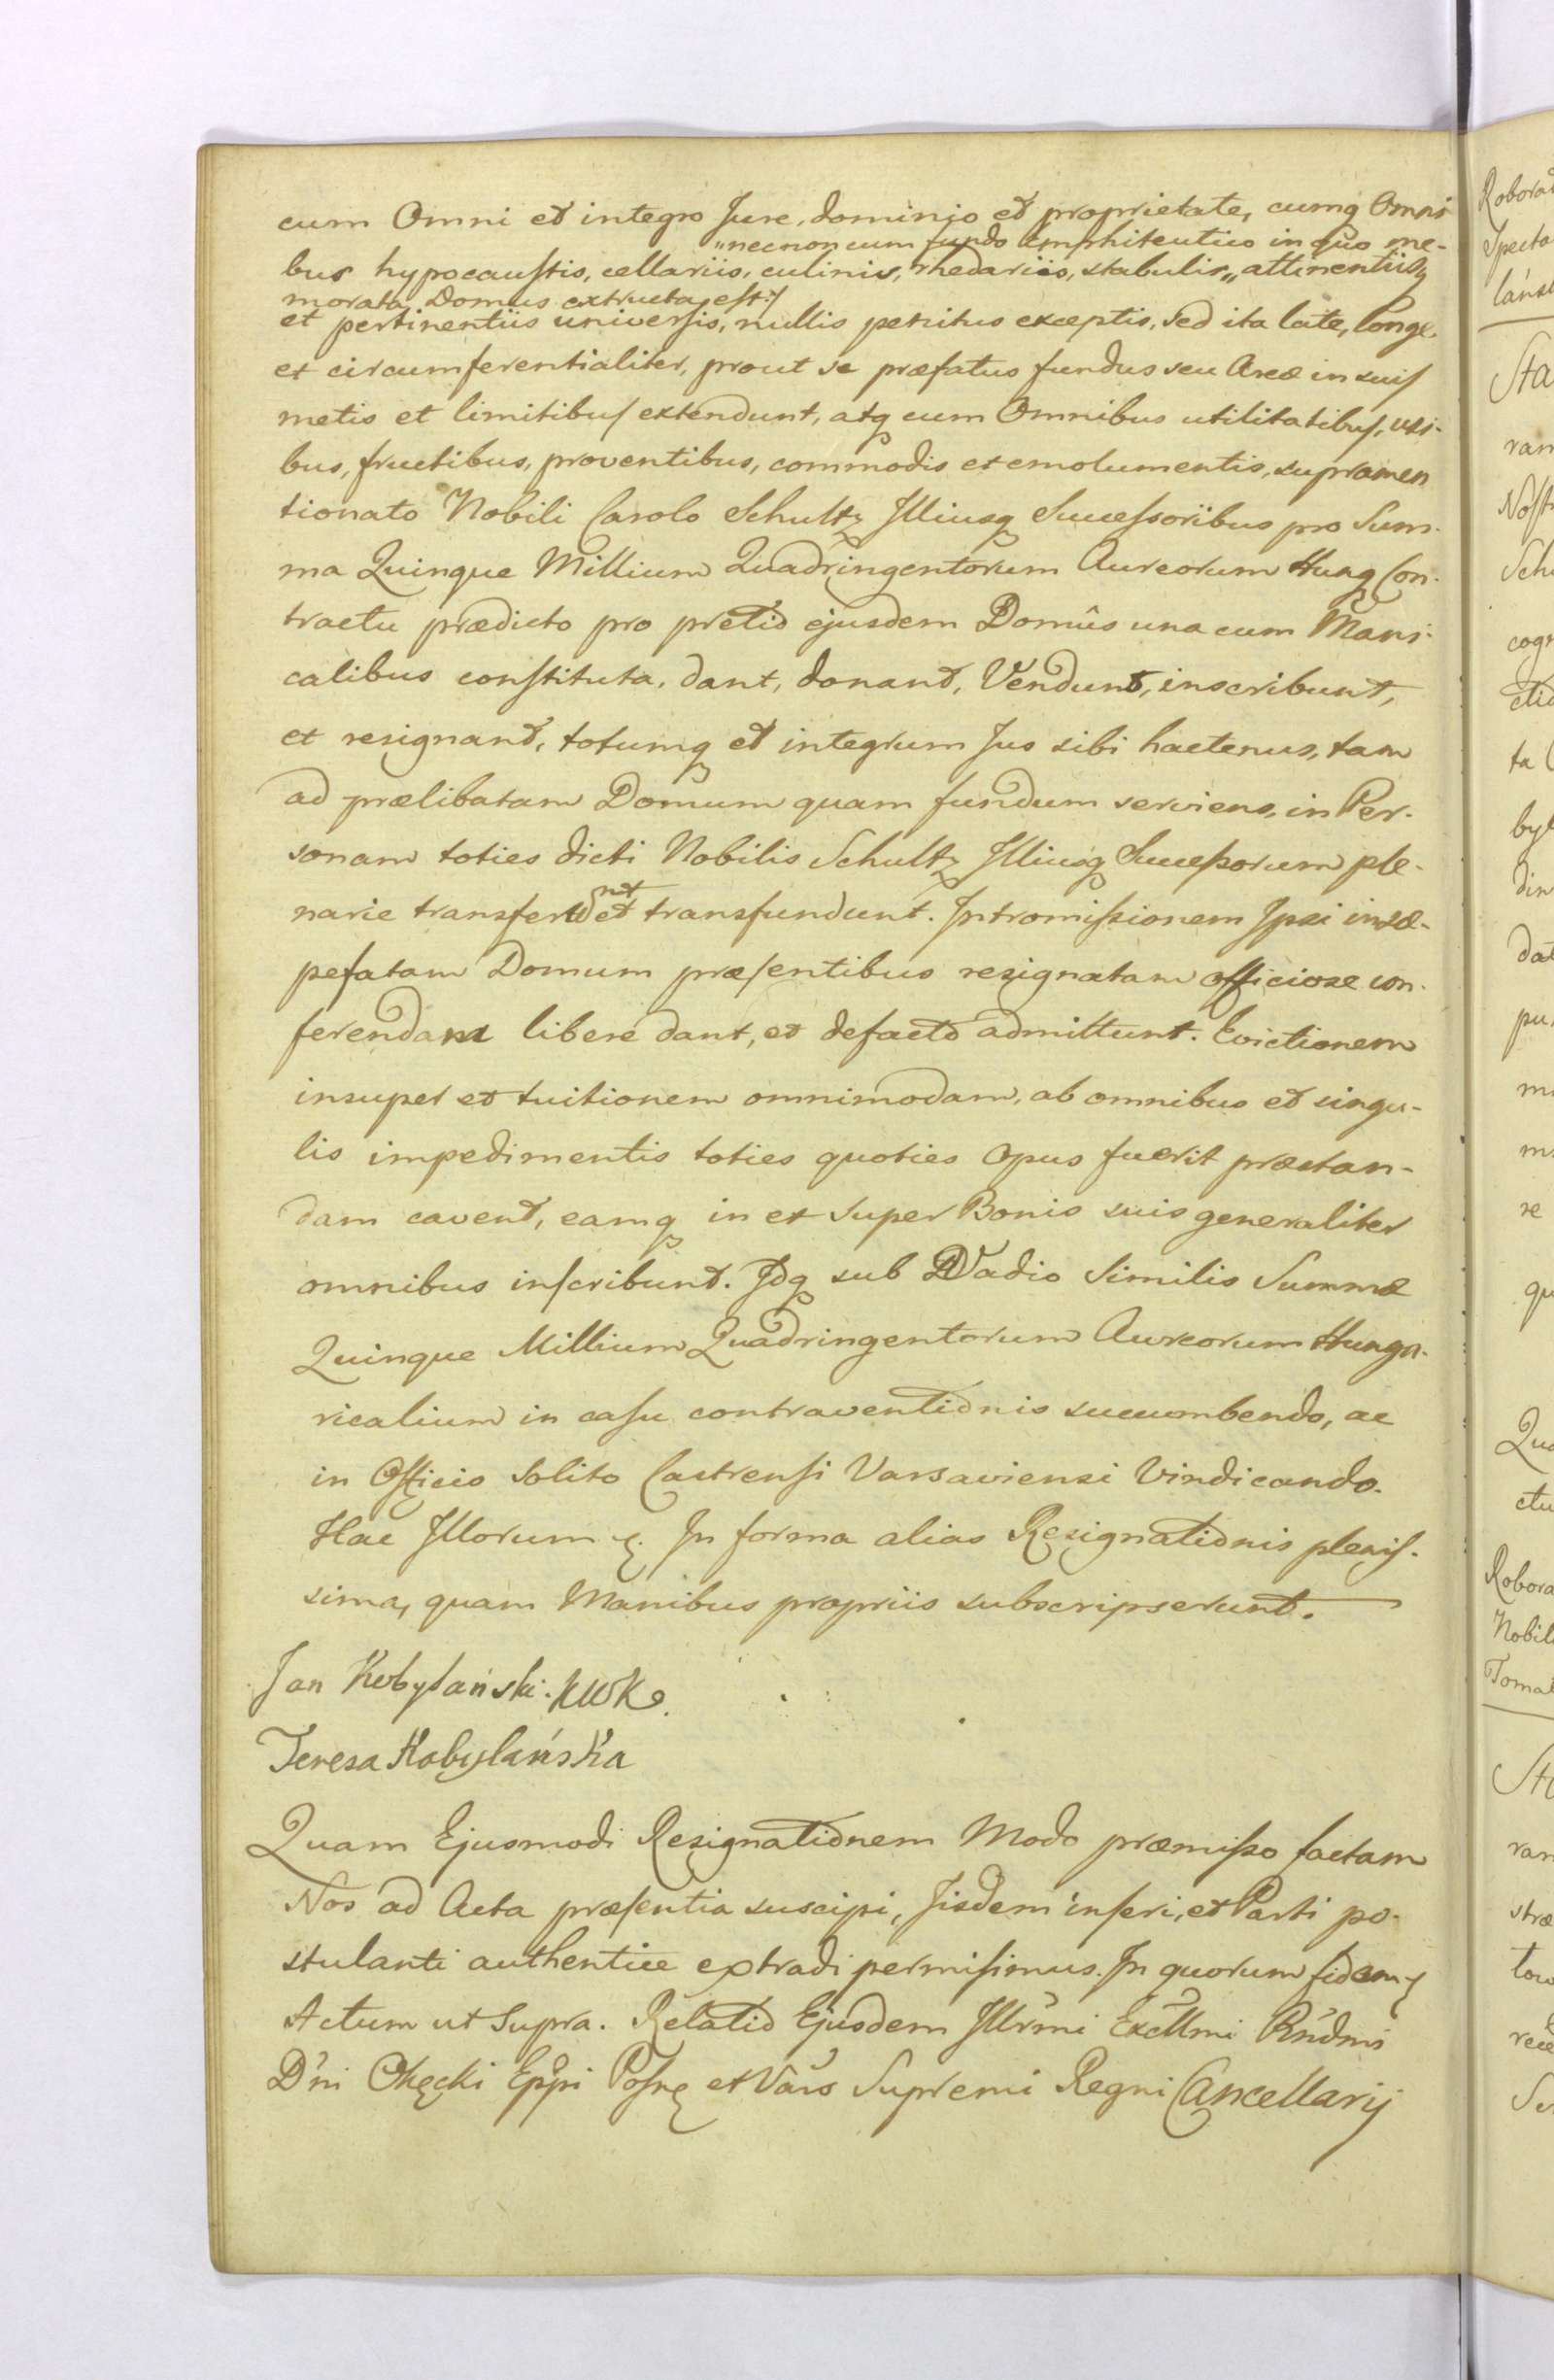 cum Omni et integro Jure, dominio et proprietate, cumq Omni-
„necnon cum fundo Emphiteutico in quo me-
bus hypocaustis, cellariis, culinis, rhedariis, stabulis„ attinentiisq
morata Domus extructa est:/
et pertinentiis universis, nullis penitus exceptis, sed ita late, longe
et circumferentialiter, prout se præfatus fundus seu Areæ in suis
metis et limitibus extendunt, atq cum Omnibus utilitatibus, usi-
bus, fructibus, proventibus, commodis et emolumentis, supramen
tionato Nobili Carolo Schultz Illiusq Successoribus pro Sum-
ma Quinque Millium Quadringentorum Aureorum Hung Con-
tractu prædicto pro pretio ejusdem Domûs una cum Mani-
calibus constituta, dant, donant, Vendunt, inscribunt,
et resignant, totumq et integrum Jus sibi hactenus, tam
ad prælibatam Domum quam fundum serviens, in Per-
sonam toties dicti Nobilis Schultz Illiusq Successorum ple-
narie transferunt et transfundunt. Intromissionem Ipsi in sæ-
pefatam Domum præsentibus resignatam officiose con-
ferendam libere dant, et defacto admittunt. Evictionem
insuper et tuitionem omnimodam, ab omnibus et singu-
lis impedimentis toties quoties Opus fuerit præstan-
dam cavent, eamq in et super Bonis suis generaliter
omnibus inscribunt. Idq sub Vadio Similis Summæ
Quinque Millium Quadringentorum Aureorum Hunga-
ricalium in casu contraventionis succumbendo, ac
in Officio Solito Castrensi Varsaviensi Vindicando.
Hac Illorum In forma alias Resignationis plenis-
sima, quam Manibus propriis subscripserunt.
Jan Kobylański. KWK
Teresa Kobylańska
Quam Ejusmodi Resignationem Modo præmisso factam
Nos ad Acta præsentia suscipi, Iisdem inseri, et Parti po-
stulanti authentice extradi permisimus. In quorum fidem
Actum ut Supra. Relatio Ejusdem Illrmi Excllmi Rndmi
Dni Okęcki Eppi Posn et Vars Supremi Regni Cancellarij